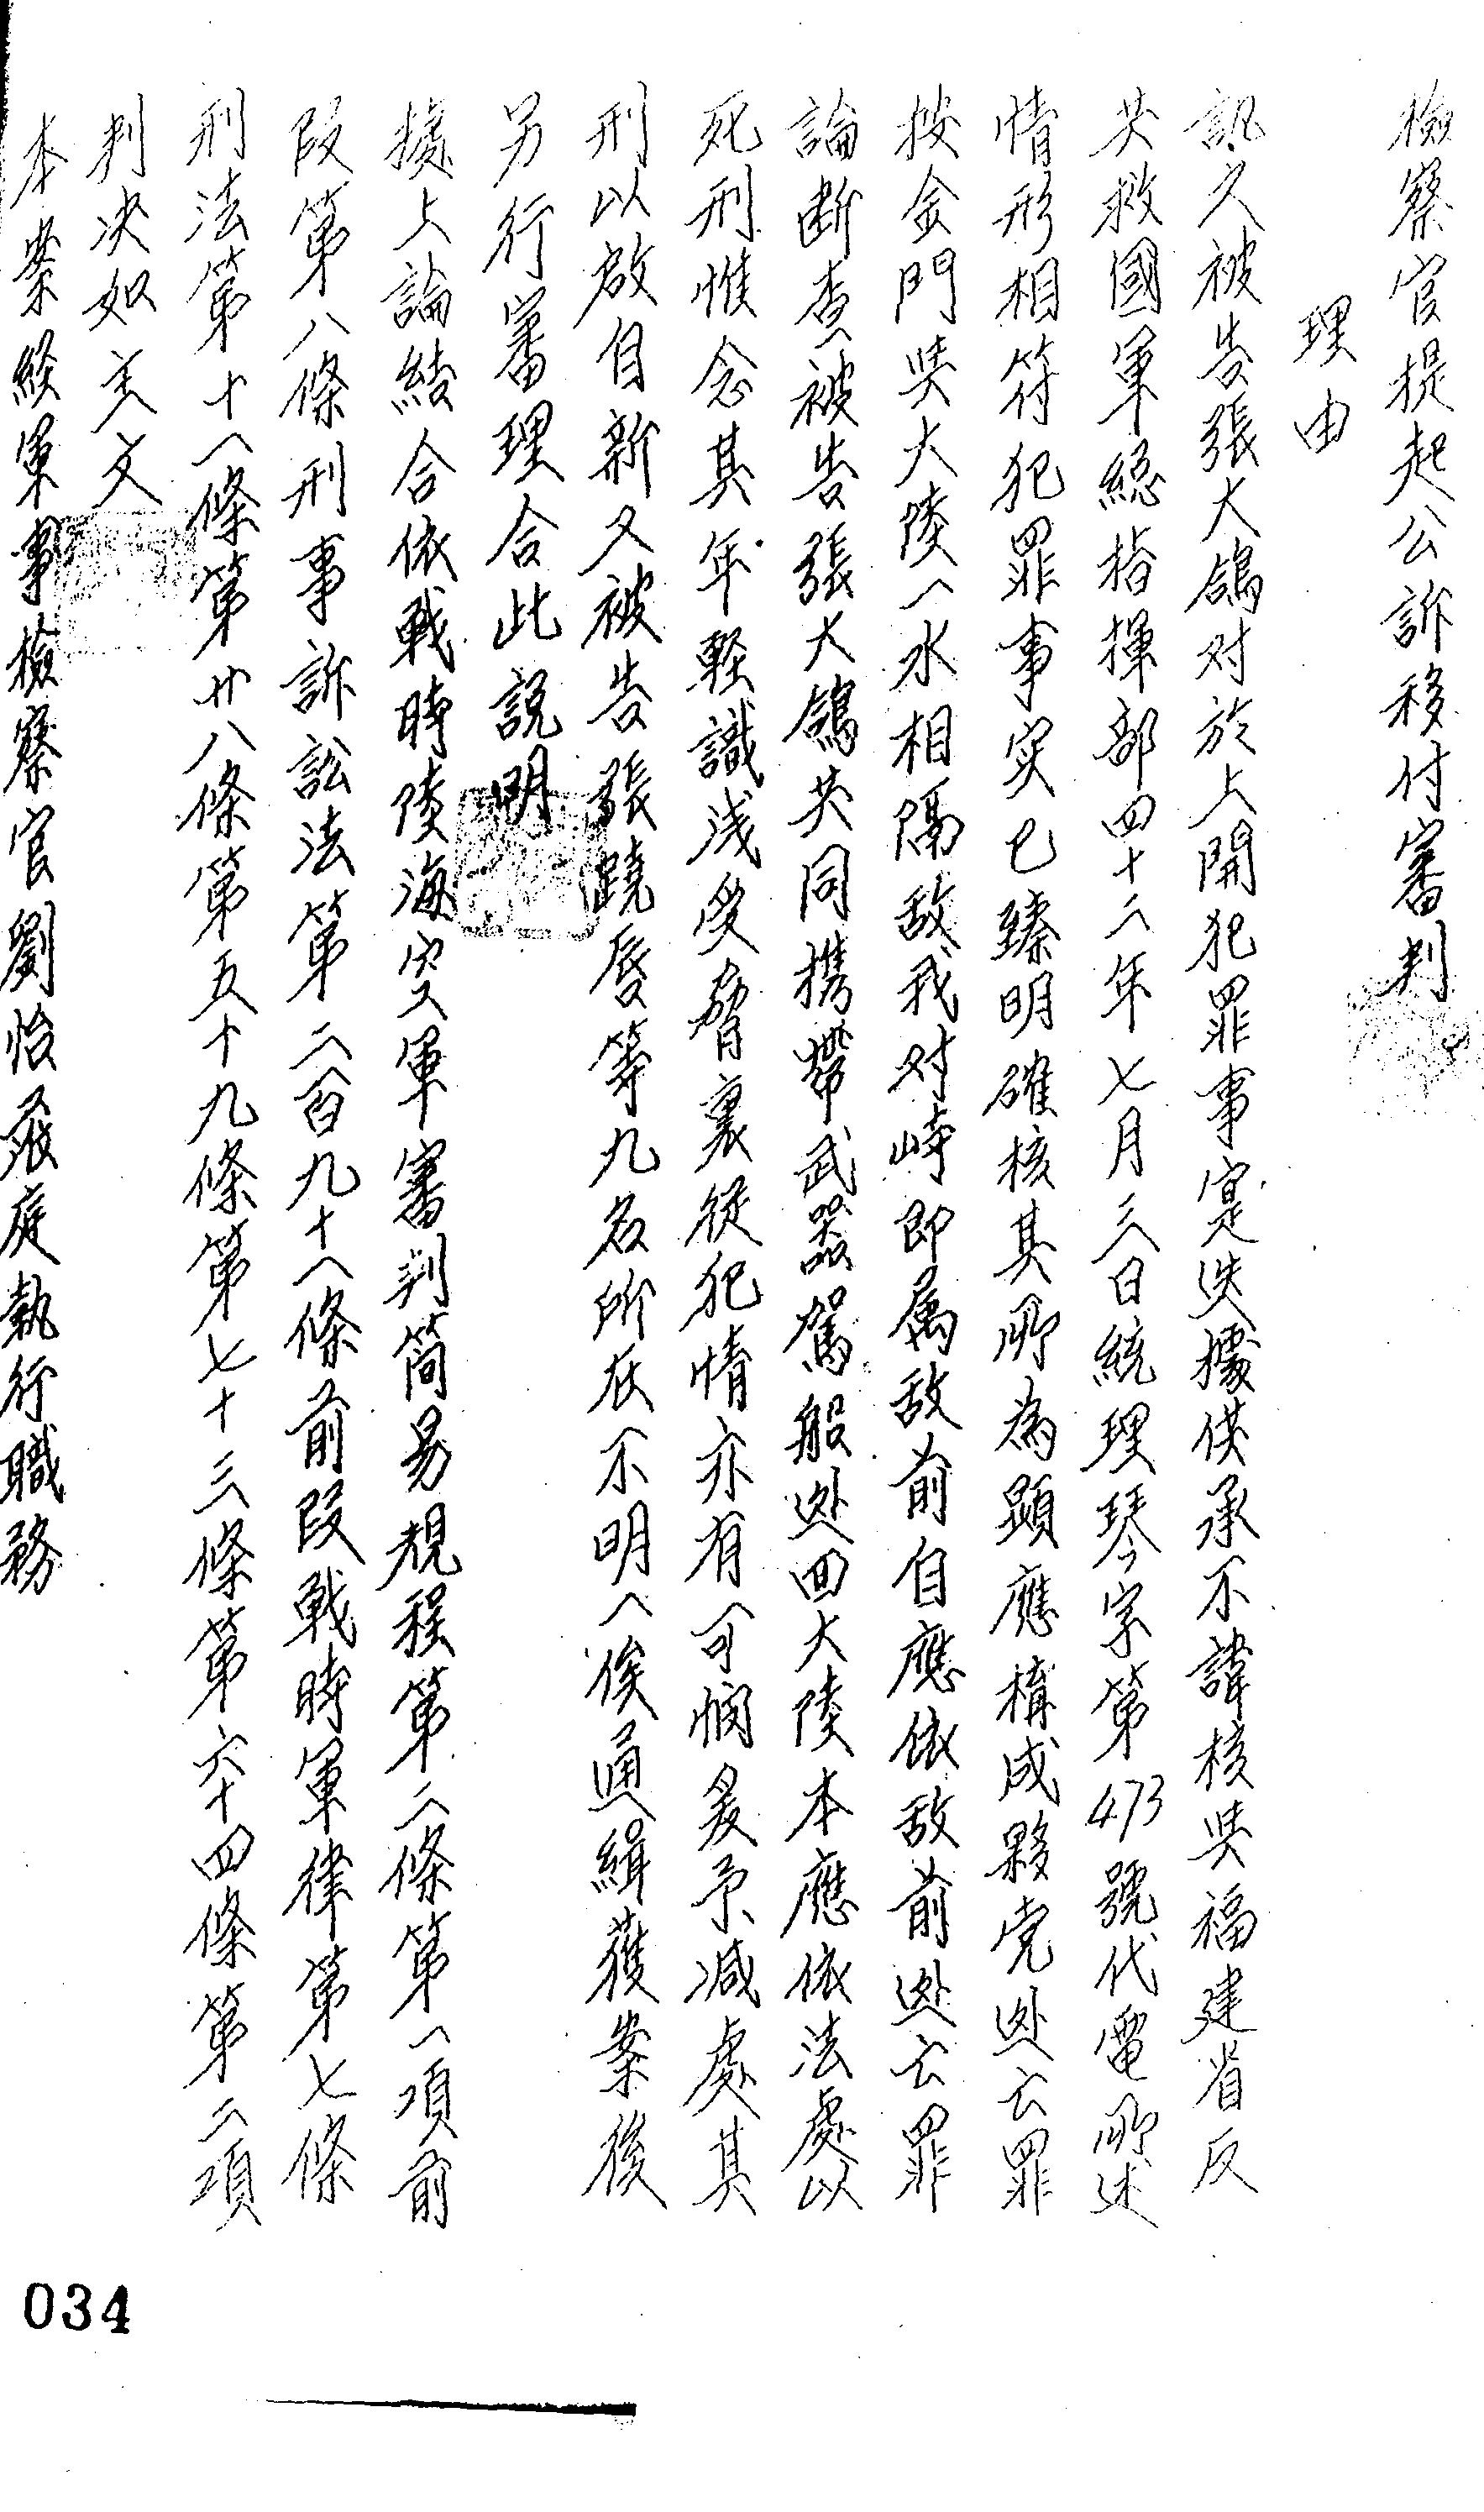 檢察官提起公訴移付審判
理由
訊之被告張大鴿对於上開犯罪事實迭據供承不諱核與福建省反
共救國軍總指揮部四十二年七月三日統理琴字第473號代電所述
情形相符犯罪事实已臻明確核其所為顕應構成夥党逃亡罪
按金門與大陸一水相隔敌我对峙即属敌前自應依敌前逃亡罪
論断查被告張大鴿共同携帶武器駕船逃回大陸本應依法處以
死刑惟念其年軽識浅受脅裏従犯情亦有可憫爰予减處其
刑以啟自新又被告張跷唇等九名所在不明一俟通緝獲案後
另行審理合此説明
據上論綾合依戦時陸海空軍審判简易規程第二條第一項前
段第八條刑事訴訟法第二百九十一條前段戦時軍律第七條
刑法第十一條第廿八條第五十九條第七十三條第六十四條第二項
判决如主文
本案経軍事檢察官劉怡森庭執行職務
034